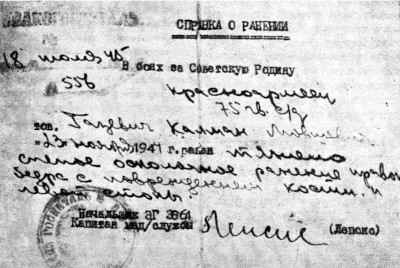 СПРАВКА О РАНЕНИИ
18 июля 45
В боях за Советскую Родину
556 красноармеец
75 гв. с/д
тов. Калман
"23" 1941 г. ранен тяжело
слепое осколочное ранение правого
бедра с повреждением кости и
левой стопы.
Начальник ЭГ 3961
Капитан мед/службы
(Лепске)